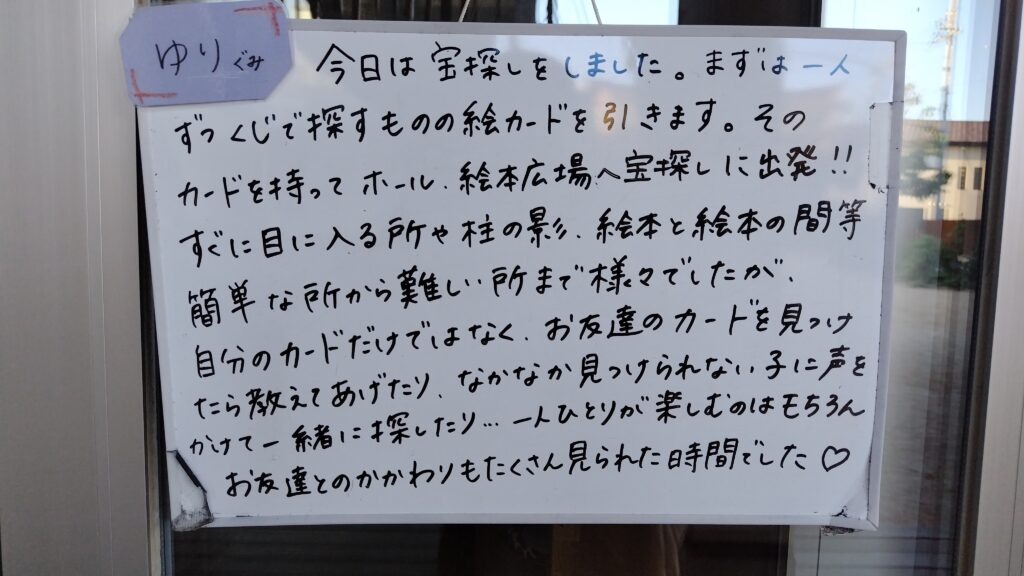 ゆりぐみ
今日は宝探しをしました。まずは一人
ずつくじで探すものの絵カードを引きます。その
カードを持ってホール、絵本広場へ宝探しに出発!!
すぐに目に入る所や柱の影、絵本と絵本の間等
簡単な所から難しい所まで様々でしたが、
自分のカードだけではなく、お友達のカードを見つけ
たら教えてあげたり、なかなか見つけられない子に声を
かけて一緒に探したり…一人ひとりが楽しむのはもちろん
お友達とのかかわりもたくさん見られた時間でした♡